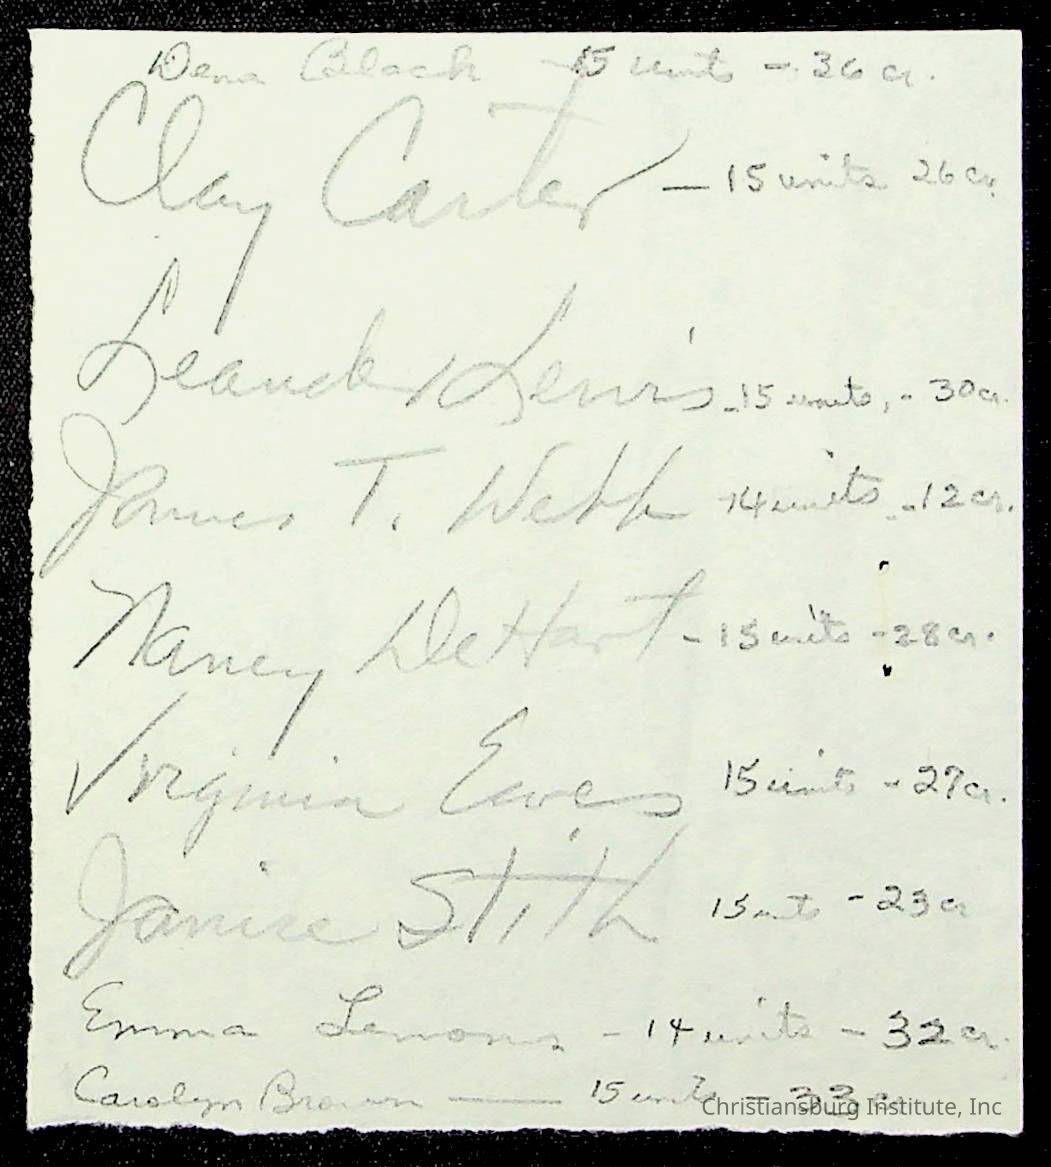 Dena Black - 15 units - 36 cr.
Clay Carter - 15 units 26 cr.
Leander Lewis - 15 units, - 30 cr.
James T. Webb 14 units - 12 cr.
Nancy DeHart - 15 units - 28 cr.
Virginia Eaves 15 units - 27 cr.
Janice Stith 15 units - 23 cr
Emma Lemons - 14 units - 32 cr.
Carolyn Brown - 15 units - 33 cr
Christiansburg Institute, Inc